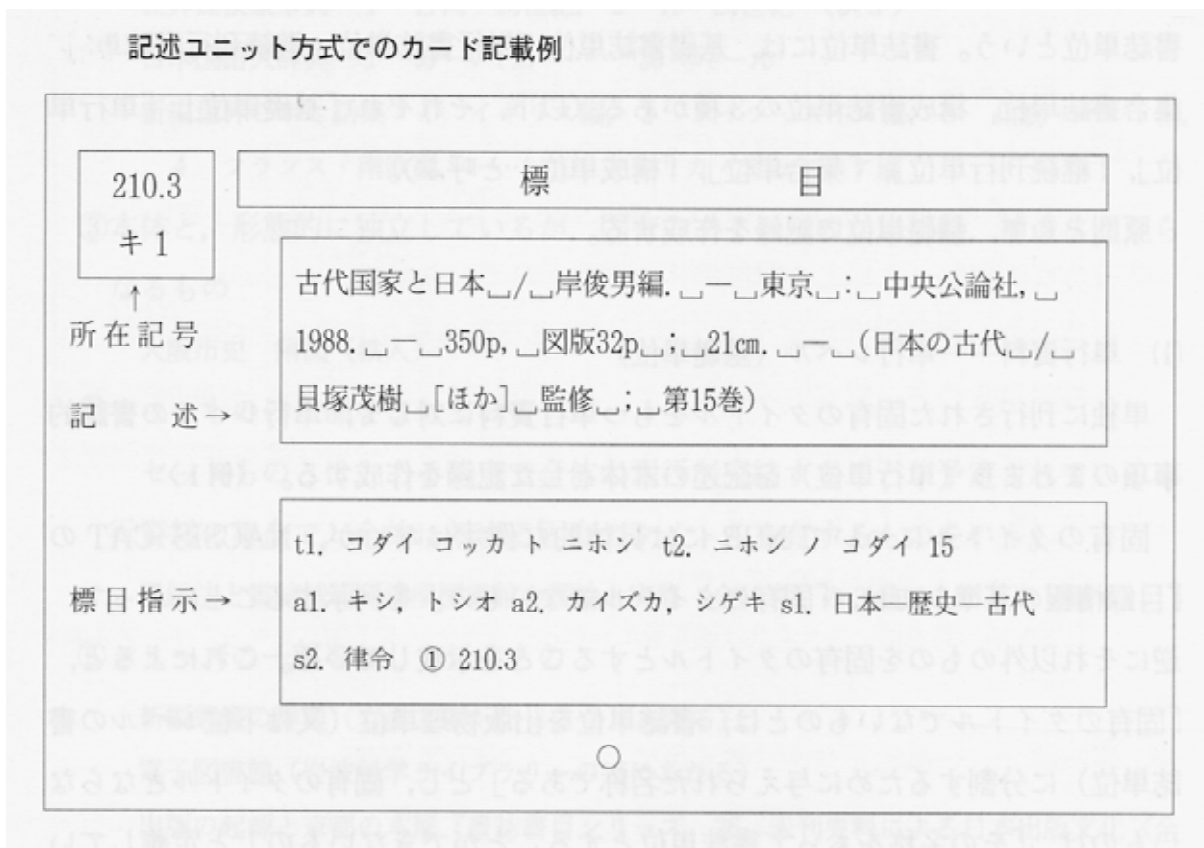 記述ユニット方式でのカード記載例
210.3
キ1
↑
所在記号
標　　目
古代国家と日本␣/␣岸俊男編.␣―␣東京␣:␣中央公論社,␣
1988.␣―␣350p,␣図版32p␣;␣21㎝.␣―␣(日本の古代␣/␣
貝塚茂樹␣[ほか]␣監修␣;␣第15巻)
記　　述→
t1. コダイ コッカ ト ニホン t2. ニホン ノ コダイ 15
標目指示→
a1. キシ, トシオ a2. カイズカ, シゲキ s1. 日本―歴史―古代
s2. 律令 ① 210.3